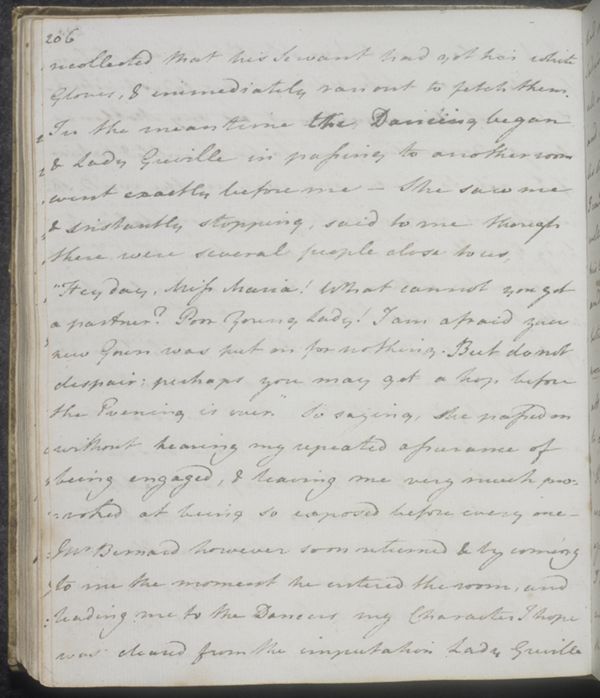 206
recollected that his Servant had got his white
Gloves, & immediately ran out to fetch them.
In the mean time the Dancing began
& Lady Greville in passing to another room
went exactly before me — She saw me
& instantly stopping, said to me though
there were several people close to us,
"Hey day, Miss Maria! What cannot you get
a partner? Poor Young Lady! I am afraid your
new Gown was put on for nothing. But do not
despair; perhaps you may get a hop before
the Evening is over." So saying, she passed on
without hearing my repeated assurance of
being engaged, & leaving me very much pro:
:voked at being so exposed before every one—
Mr Bernard however soon returned & by coming
to me the moment he entered the room, and
leading me to the Dancers my Character I hope
was cleared from the imputation Lady Greville